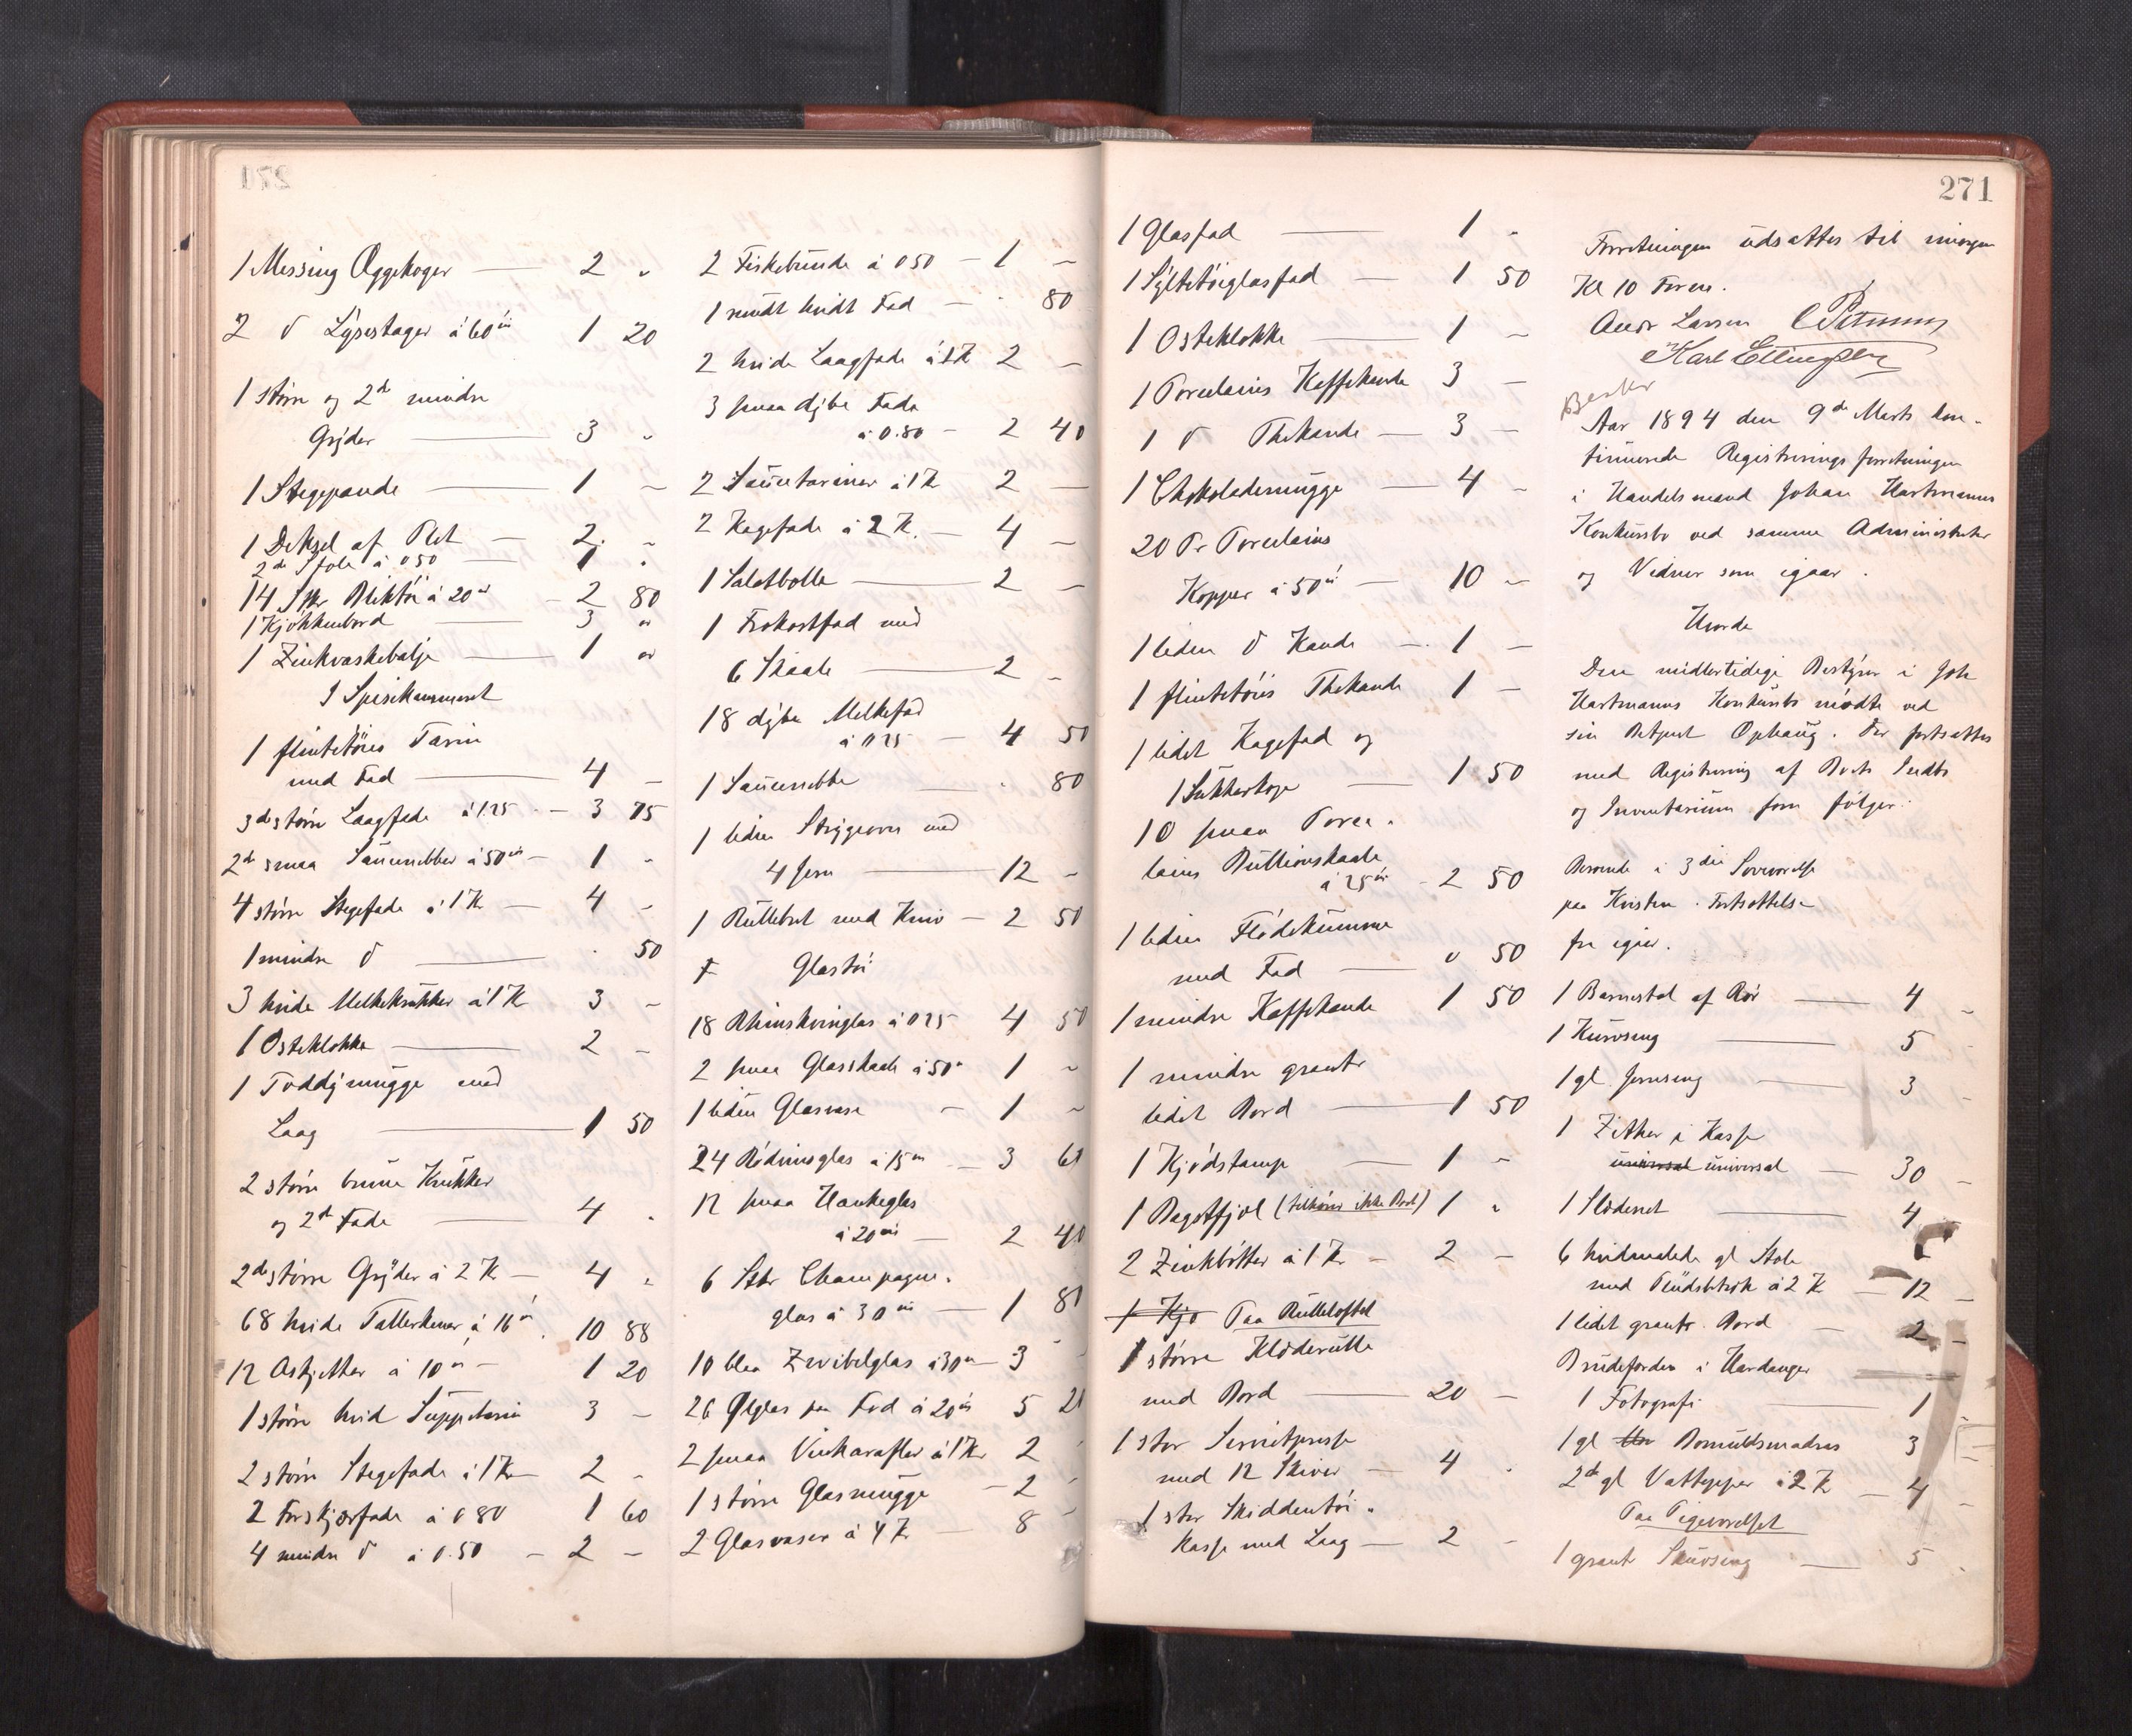 1 Messing Æggekoger — 2 "
2 do Lysestager á 60 ør 1 20
1 større og 2de mindre
Gryder — 3 "
1 Stegepande — 1 —
1 Deksel af — 2 "
2de Stole á 0 50 — 1 "
14 Stkr Bliktøi á 20 ør — 2 80
1 Kjøkkenbord — 3 "
1 Zinkvaskebalje — 1 "
I Spisekammeret
1 flintetøies Tarin
med Fad — 4 —
3de større Laagfade á 1.25 — 3 75
2de smaa Saucenebber á 50 ør — 1 "
4 større Stegefade á 1 Kr — 4 "
1 mindre do — " 50
3 hvide Melkekrukker á 1 Kr 3 "
1 Osteklokke — 2 —
1 Toddymugge med
Laag — 1 50
2 større brune Krukker
og 2de Fade — 4 "
2de større Gryder á 2 Kr — 4 "
68 hvide Tallerkener á 16 ør . 10 88
12 Askjetter á 10 ør — 1 20
1 større hvid Suppetarin 3 —
2 større Stegefade á 1 Kr — 2 "
2 Forskjærfade á 0 80 1 60
4 mindre do á 0.50 — 2 —
2 Fiskebunde á 0 50 — 1 —
1 rundt hvidt Fad — " 80
2 hvide Laagfade á 1 Kr 2 —
3 smaa dybe Fade
á 0.80 — 2 40
2 Saucetariner á 1 Kr 2 —
2 Kagefade á 2 Kr. — 4 —
1 Salatbolle — 2 —
1 Frokostfad med
6 Skaale — 2 —
18 dybe Melkefad
á 0 25 — 4 50
1 Saucenebbe — " 80
1 liden Strygeovn med
4 Jern — 12 —
1 Rullebret med Kniv — 2 50
Glastøi
18 Rhinskvinglas á 0 25 4 50
2 smaa Glasskaale á 50 ør 1 —
1 liden Glasvase — 1 —
24 Rødvinsglas á 15 ør — 3 60
12 smaa Hankeglas
á 20 ør — 2 40
6 Stkr Champagne-
glas á 30 ør — 1 80
10 blaa Zwibelglas á 30 ør — 3 —
26 Ølglas paa Fod á 20 ør 5 20
2 smaa Vinkarafler á 1 Kr 2 "
1 større Glasmugge — 2 "
2 Glasvaser á 4 Kr — 8 "
271
1 Glasfad — 1 "
1 Syltetøiglasfad — 1 50
1 Osteklokke — 1 —
1 Porcelains Kaffekande 3 —
1 do Thekande — 3 —
1 Chokolademugge — 4 —
20 Pr Porcelains
Kopper á 50 ør — 10 —
1 liden do Kande — 1 —
1 flintetøies Thekande 1 —
1 lidet Kagefad og
1 Sukkerkop — 1 50
10 smaa Porce-
lains Bullionskaale
á 25 ør — 2 50
1 liden Flødekumme
med Fad — " 50
1 mindre Kaffekande 1 50
1 mindre graat
lidet Bord — 1 50
1 Kjødstamp — 1 "
1 Bagetfjøl (tilhører ikke Boet) 1 "
2 Zinkbøtter á 1 Kr — 2 —
1 Kjø Paa Rulleloftet
1 større Klæderulle
med Bord — 20 —
1 stor Servietpresse
med 12 Skiver — 4 "
1 stor Skiddentøi-
kasse med Laag — 2 —
Forretningen udsattes til imorgen
Kl 10 Form.
Andr Larsen C Petersen
Karl Ellingsen
Aar 1894 den 9de Marts kon-
tinuerede Registreringsforretningen
i Handelsmand Johan Hartmanns
Konkursbo ved samme Administrator
og Vidner som igaar.
Hvorda
Den midlertidige Bestyrer i Joh
Hartmanns Konkursbo mødte ved
sin Ophaug. Der fortsattes
med Registrering af Boets Indbo
og Inventarium som følger:
Beroende i 3die Soveværelse
paa Kvisten. Fortsættelse
fra igaar.
1 Barnestol af Rør — 4 —
1 Kurvseng — 5 "
1 gl Jernseng — 3 —
1 Zither i Kasse
universal universal — 30 —
1 Slædenet — 4 —
6 hvidmalede gl Stole
med Pludsbetræk á 2 Kr — 12 —
1 lidet graat Bord — 2 —
Brudefærden i Hardanger
1 Fotografi — 1 —
1 gl Bomuldsmadras 3 —
2de gl Vattepper á 2 Kr — 4 —
Paa Pigeværelset
1 graat Skuvseng — 5 "